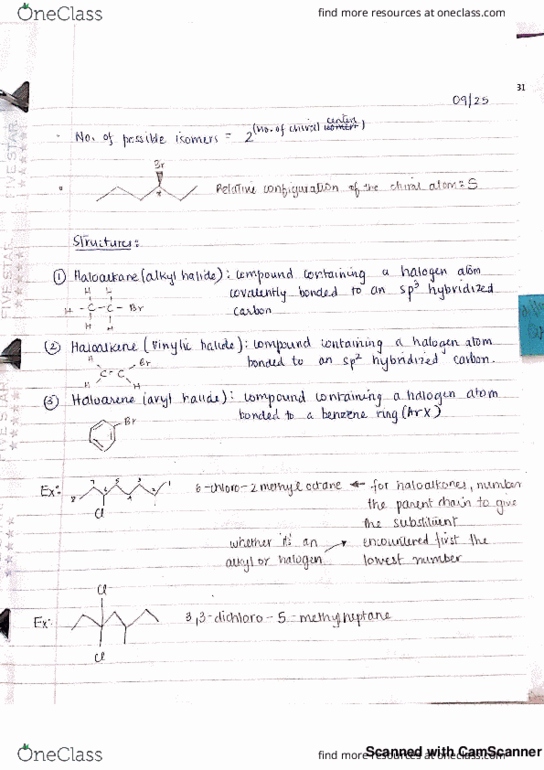 OneClass
find more resources at oneclass.com
31
09/25
No. of possible isomers = 2^(no. of chiral isomers centers)
Br
*
Relative configuration of the chiral atom = S
Structures:
① Haloalkane (alkyl halide): compound containing a halogen atom
covalently bonded to an sp³ hybridized
carbon
H H
H - C - C - Br
H H
② Haloalkene (vinylic halide): compound containing a halogen atom
bonded to an sp² hybridized carbon.
H Br
C = C
H H
③ Haloarene (aryl halide): compound containing a halogen atom
bonded to a benzene ring (ArX)
Br
Ex:
8
1
Cl
6-chloro-2 methyl octane ← for haloalkanes, number
the parent chain to give
the substituent
encountered first the
lowest number
whether it's an
alkyl or halogen
Cl
Ex:
3,3-dichloro-5-methylheptane
Cl
FIVE STAR
FIVE STAR
FIVE STAR
OneClass
find more resources at oneclass.com
Scanned with CamScanner